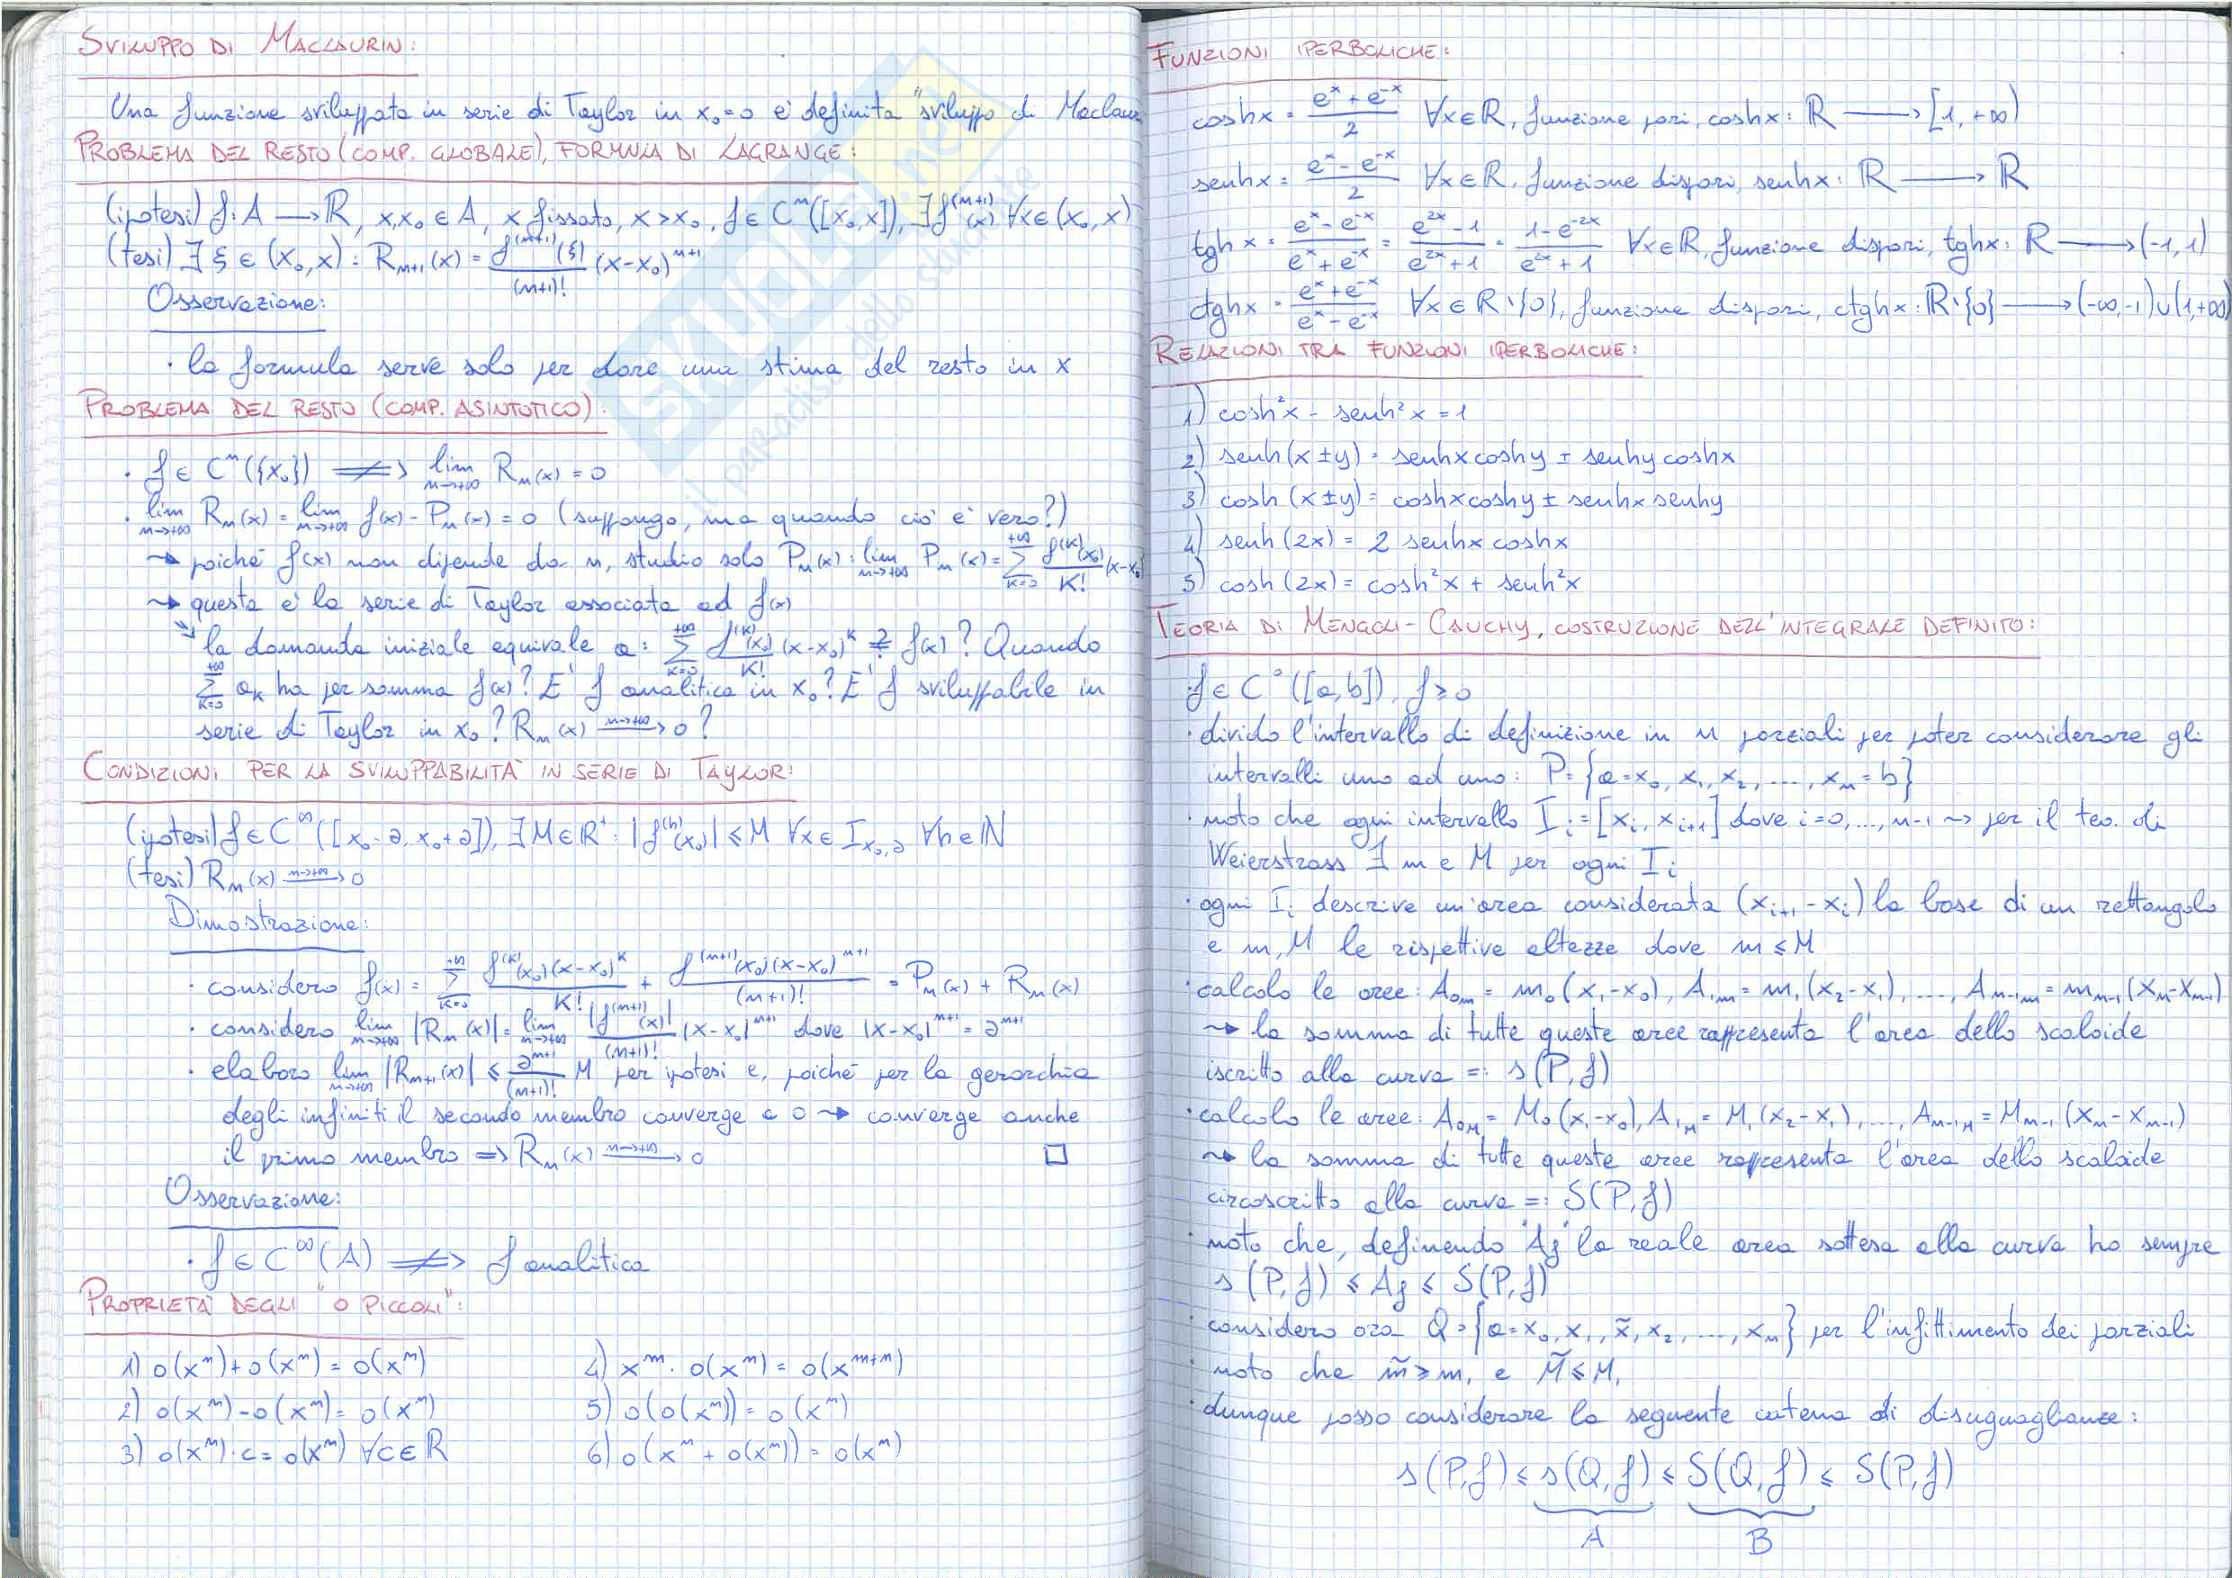 SVILUPPO DI MACLAURIN:
Una funzione sviluppata in serie di Taylor in x₀=0 è definita "sviluppo di Maclaur
PROBLEMA DEL RESTO (COMP. GLOBALE), FORMULA DI LAGRANGE:
(ipotesi) f: A ⟶ ℝ, x,x₀ ∈ A, x fissato, x > x₀, f ∈ Cⁿ([x₀,x]), ∃f⁽ⁿ⁺¹⁾(x) ∀x∈(x₀,x)
(tesi) ∃ ξ ∈ (x₀,x) : Rₙ₊₁(x) = f⁽ⁿ⁺¹⁾(ξ)/(n+1)! (x-x₀)ⁿ⁺¹
Osservazione:
· la formula serve solo per dare una stima del resto in x
PROBLEMA DEL RESTO (COMP. ASINTOTICO):
· f ∈ Cⁿ({x₀}) ⇏ lim n→+∞ Rₙ(x) = 0
· lim n→+∞ Rₙ(x) = lim n→+∞ f(x) - Pₙ(x) = 0 (suppongo, ma quando ciò è vero?)
⇝ poiché f(x) non dipende da n, studio solo Pₙ(x): lim n→+∞ Pₙ(x) = Σ k=0 +∞ f⁽ᵏ⁾(x₀)/K! (x-x₀)
⇝ questa è la serie di Taylor associata ad f(x)
⇝ la domanda iniziale equivale a: Σ k=0 +∞ f⁽ᵏ⁾(x₀)/K! (x-x₀)ᵏ ?= f(x)? Quando
Σ k=0 +∞ aₖ ha per somma f(x)? E' f analitica in x₀? E' f sviluppabile in
serie di Taylor in x₀? Rₙ(x) n→+∞⟶ 0?
CONDIZIONI PER LA SVILUPPABILITÀ IN SERIE DI TAYLOR:
(ipotesi) f ∈ C^∞([x₀-∂, x₀+∂]), ∃M∈ℝ⁺: |f⁽ʰ⁾(x₀)| ≤ M ∀x∈I x₀,∂ ∀h∈ℕ
(tesi) Rₙ(x) n→+∞⟶ 0
Dimostrazione:
· considero f(x) = Σ k=0 +∞ f⁽ᵏ⁾(x₀)(x-x₀)ᵏ/K! + f⁽ⁿ⁺¹⁾(x₀)(x-x₀)ⁿ⁺¹/(n+1)! = Pₙ(x) + Rₙ(x)
· considero lim n→+∞ |Rₙ(x)| = lim n→+∞ |f⁽ⁿ⁺¹⁾(x)|/(n+1)! |x-x₀|ⁿ⁺¹ dove |x-x₀|ⁿ⁺¹ = ∂ⁿ⁺¹
· elaboro lim n→+∞ |Rₙ₊₁(x)| ≤ ∂ⁿ⁺¹/(n+1)! M per ipotesi e, poiché per la gerarchia
degli infiniti il secondo membro converge a 0 ⇝ converge anche
il primo membro ⇒ Rₙ(x) n→+∞⟶ 0 □
Osservazione:
· f ∈ C^∞(A) ⇏ f analitica
PROPRIETÀ DEGLI "O PICCOLI":
1) o(xⁿ)+o(xⁿ) = o(xⁿ) 4) xᵐ · o(xⁿ) = o(xᵐ⁺ⁿ)
2) o(xⁿ)-o(xⁿ) = o(xⁿ) 5) o(o(xⁿ)) = o(xⁿ)
3) o(xⁿ)·c = o(xⁿ) ∀c∈ℝ 6) o(xⁿ + o(xⁿ)) = o(xⁿ)
FUNZIONI IPERBOLICHE:
coshx = (eˣ + e⁻ˣ)/2 ∀x∈ℝ, funzione pari, coshx: ℝ ⟶ [1, +∞)
senhx = (eˣ - e⁻ˣ)/2 ∀x∈ℝ, funzione dispari, senhx: ℝ ⟶ ℝ
tghx = (eˣ - e⁻ˣ)/(eˣ + e⁻ˣ) = (e²ˣ - 1)/(e²ˣ + 1) = (1 - e⁻²ˣ)/(e²ˣ + 1) ∀x∈ℝ, funzione dispari, tghx: ℝ ⟶ (-1, 1)
ctghx = (eˣ + e⁻ˣ)/(eˣ - e⁻ˣ) ∀x∈ℝ∖{0}, funzione dispari, ctghx: ℝ∖{0} ⟶ (-∞,-1)∪(1,+∞)
RELAZIONI TRA FUNZIONI IPERBOLICHE:
1) cosh²x - senh²x = 1
2) senh(x±y) = senhxcoshy ± senhycoshx
3) cosh(x±y) = coshxcoshy ± senhxsenhy
4) senh(2x) = 2 senhxcoshx
5) cosh(2x) = cosh²x + senh²x
TEORIA DI MENGOLI-CAUCHY, COSTRUZIONE DELL'INTEGRALE DEFINITO:
· f ∈ C°([a,b]), f ≥ 0
· divido l'intervallo di definizione in n parziali per poter considerare gli
intervalli uno ad uno: P = {a=x₀, x₁, x₂, ..., xₙ=b}
· noto che ogni intervallo Iᵢ = [xᵢ, xᵢ₊₁] dove i=0,...,n-1 ⇝ per il teo. di
Weierstrass ∃ m e M per ogni Iᵢ
· ogni Iᵢ descrive un'area considerata (xᵢ₊₁ - xᵢ) la base di un rettangolo
e m,M le rispettive altezze dove m ≤ M
· calcolo le aree: A₀ₘ = m₀(x₁-x₀), A₁ₘ = m₁(x₂-x₁), ..., Aₙ₋₁ₘ = mₙ₋₁(xₙ-xₙ₋₁)
⇝ la somma di tutte queste aree rappresenta l'area dello scaloide
iscritto alla curva =: s(P,f)
· calcolo le aree: A₀M = M₀(x₁-x₀), A₁M = M₁(x₂-x₁), ..., Aₙ₋₁M = Mₙ₋₁(xₙ-xₙ₋₁)
⇝ la somma di tutte queste aree rappresenta l'area dello scaloide
circoscritto alla curva =: S(P,f)
· noto che, definendo "Af" la reale area sottesa alla curva ho sempre
s(P,f) ≤ Af ≤ S(P,f)
· considero ora Q = {a=x₀, x₁, x̃, x₂, ..., xₙ} per l'infittimento dei parziali
· noto che m̃ ≥ m₁ e M̃ ≤ M₁
· dunque posso considerare la seguente catena di disuguaglianze:
s(P,f) ≤ s(Q,f) ≤ S(Q,f) ≤ S(P,f)
A B
SKUOLA.net
il paradiso dello studente